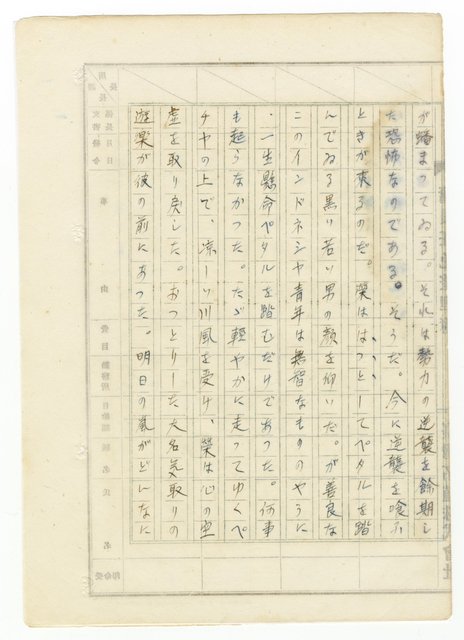 が蟠まつてゐる。それは勢力の逆襲を餘期し
た恐怖なのである。そうだ。今に逆襲を喰ふ
ときが来るのだ。榮ははつとしてペタルを踏
んでゐる黒い若い男の顔を仰いだ。が善良な
このインドネシヤ青年は無智なもののやうに
一生懸命ペタルを踏むだけであつた。何事
も起らなかつた。たゞ軽やかに走つてゆくペ
チヤの上で、凉しい川風を受け、榮は心の空
虚を取り戻した。おつとりした大名気取りの
遊楽が彼の前にあつた。明日の嵐がどんなに